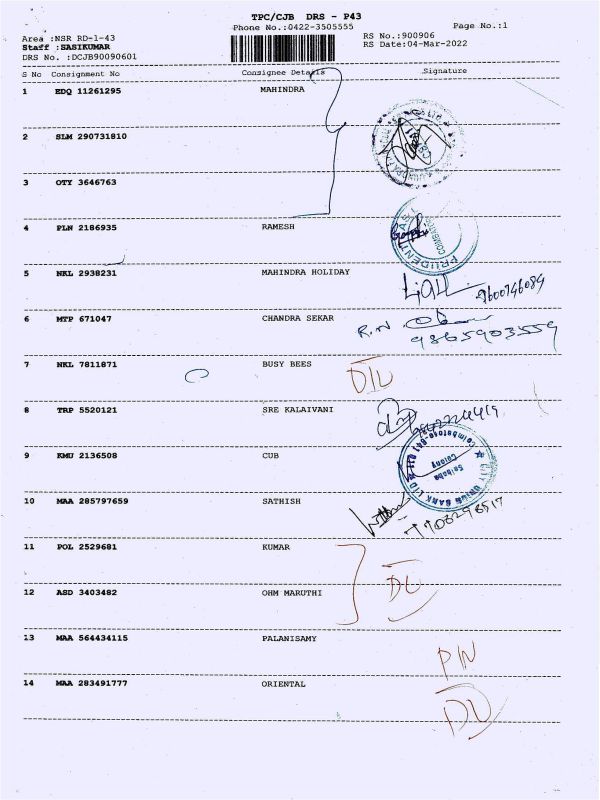 TPC/CJB DRS - P43
Phone No.:0422-3505555
Page No.:1
Area :NSR RD-1-43
RS No.:900906
Staff :SASIKUMAR
RS Date:04-Mar-2022
DRS No. :DCJB90090601
S No Consignment No Consignee Details Signature
1 EDQ 11261295 MAHINDRA
2 SLM 290731810
3 OTY 3646763
4 PLN 2186935 RAMESH
PRUDENT
5 NKL 2938231 MAHINDRA HOLIDAY
9600746084
6 MTP 671047 CHANDRA SEKAR
R.N.
9865903559
7 NKL 7811871 BUSY BEES
8 TRP 5520121 SRE KALAIVANI
9 KMU 2136508 CUB
CITY UNION BANK LTD
Saibaba
Colony
10 MAA 285797659 SATHISH
11 POL 2529681 KUMAR
12 ASD 3403482 OHM MARUTHI
DL
13 MAA 564434115 PALANISAMY
PN
14 MAA 283491777 ORIENTAL
DL